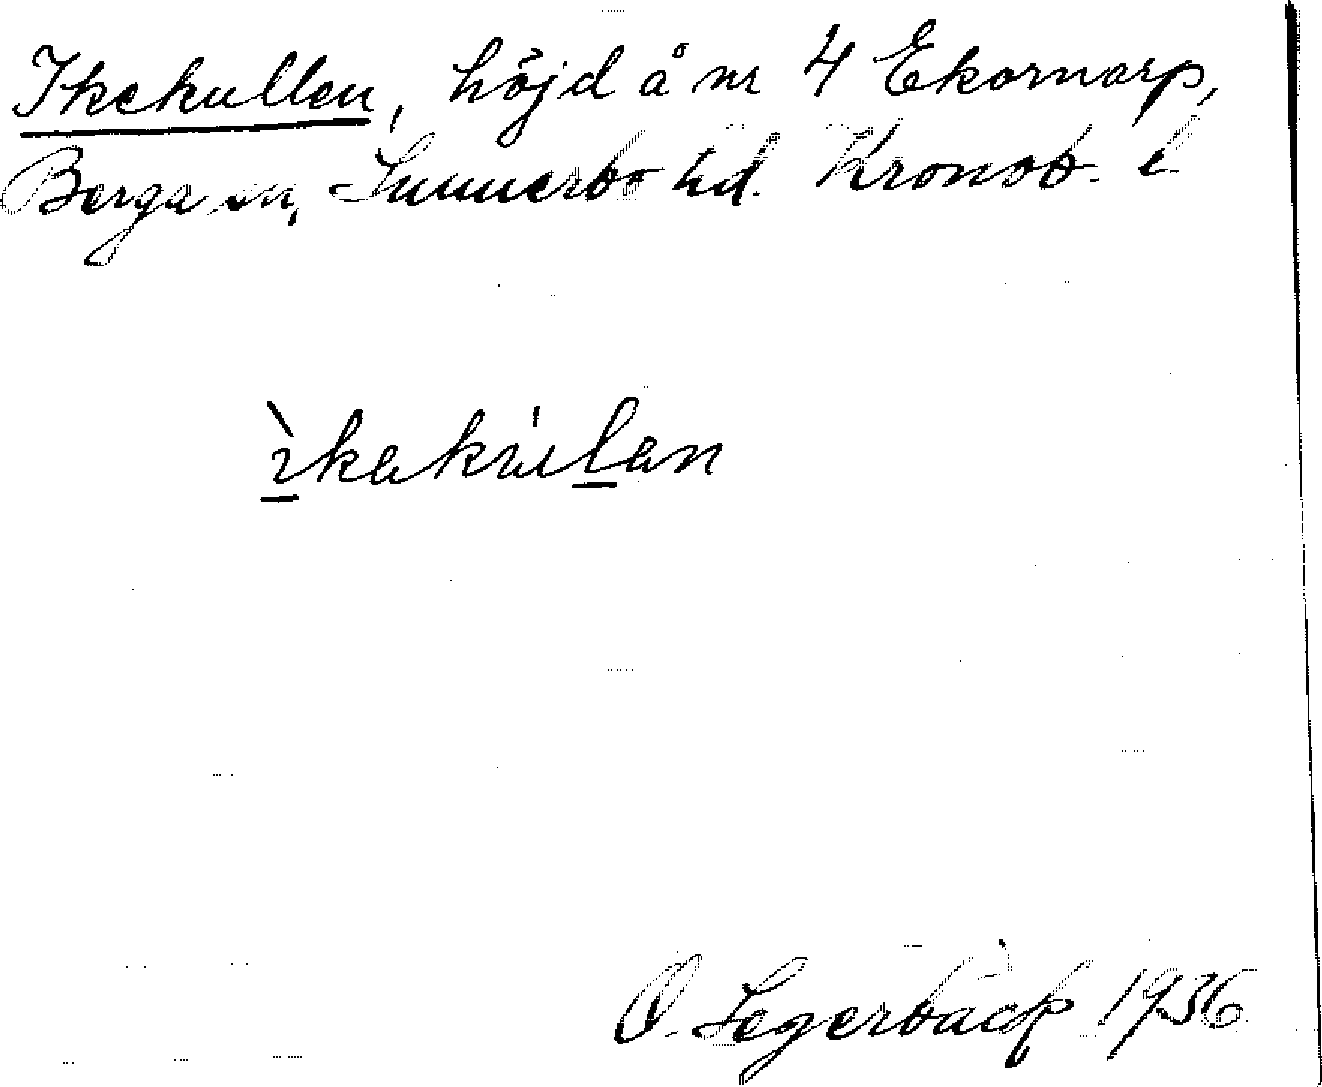 Ikekullen, höjd å nr 4 Ekornarp,
Berga sn, Sunnerbo hd. Kronob. l
ìkekúlen
O. Segerbäck 1936